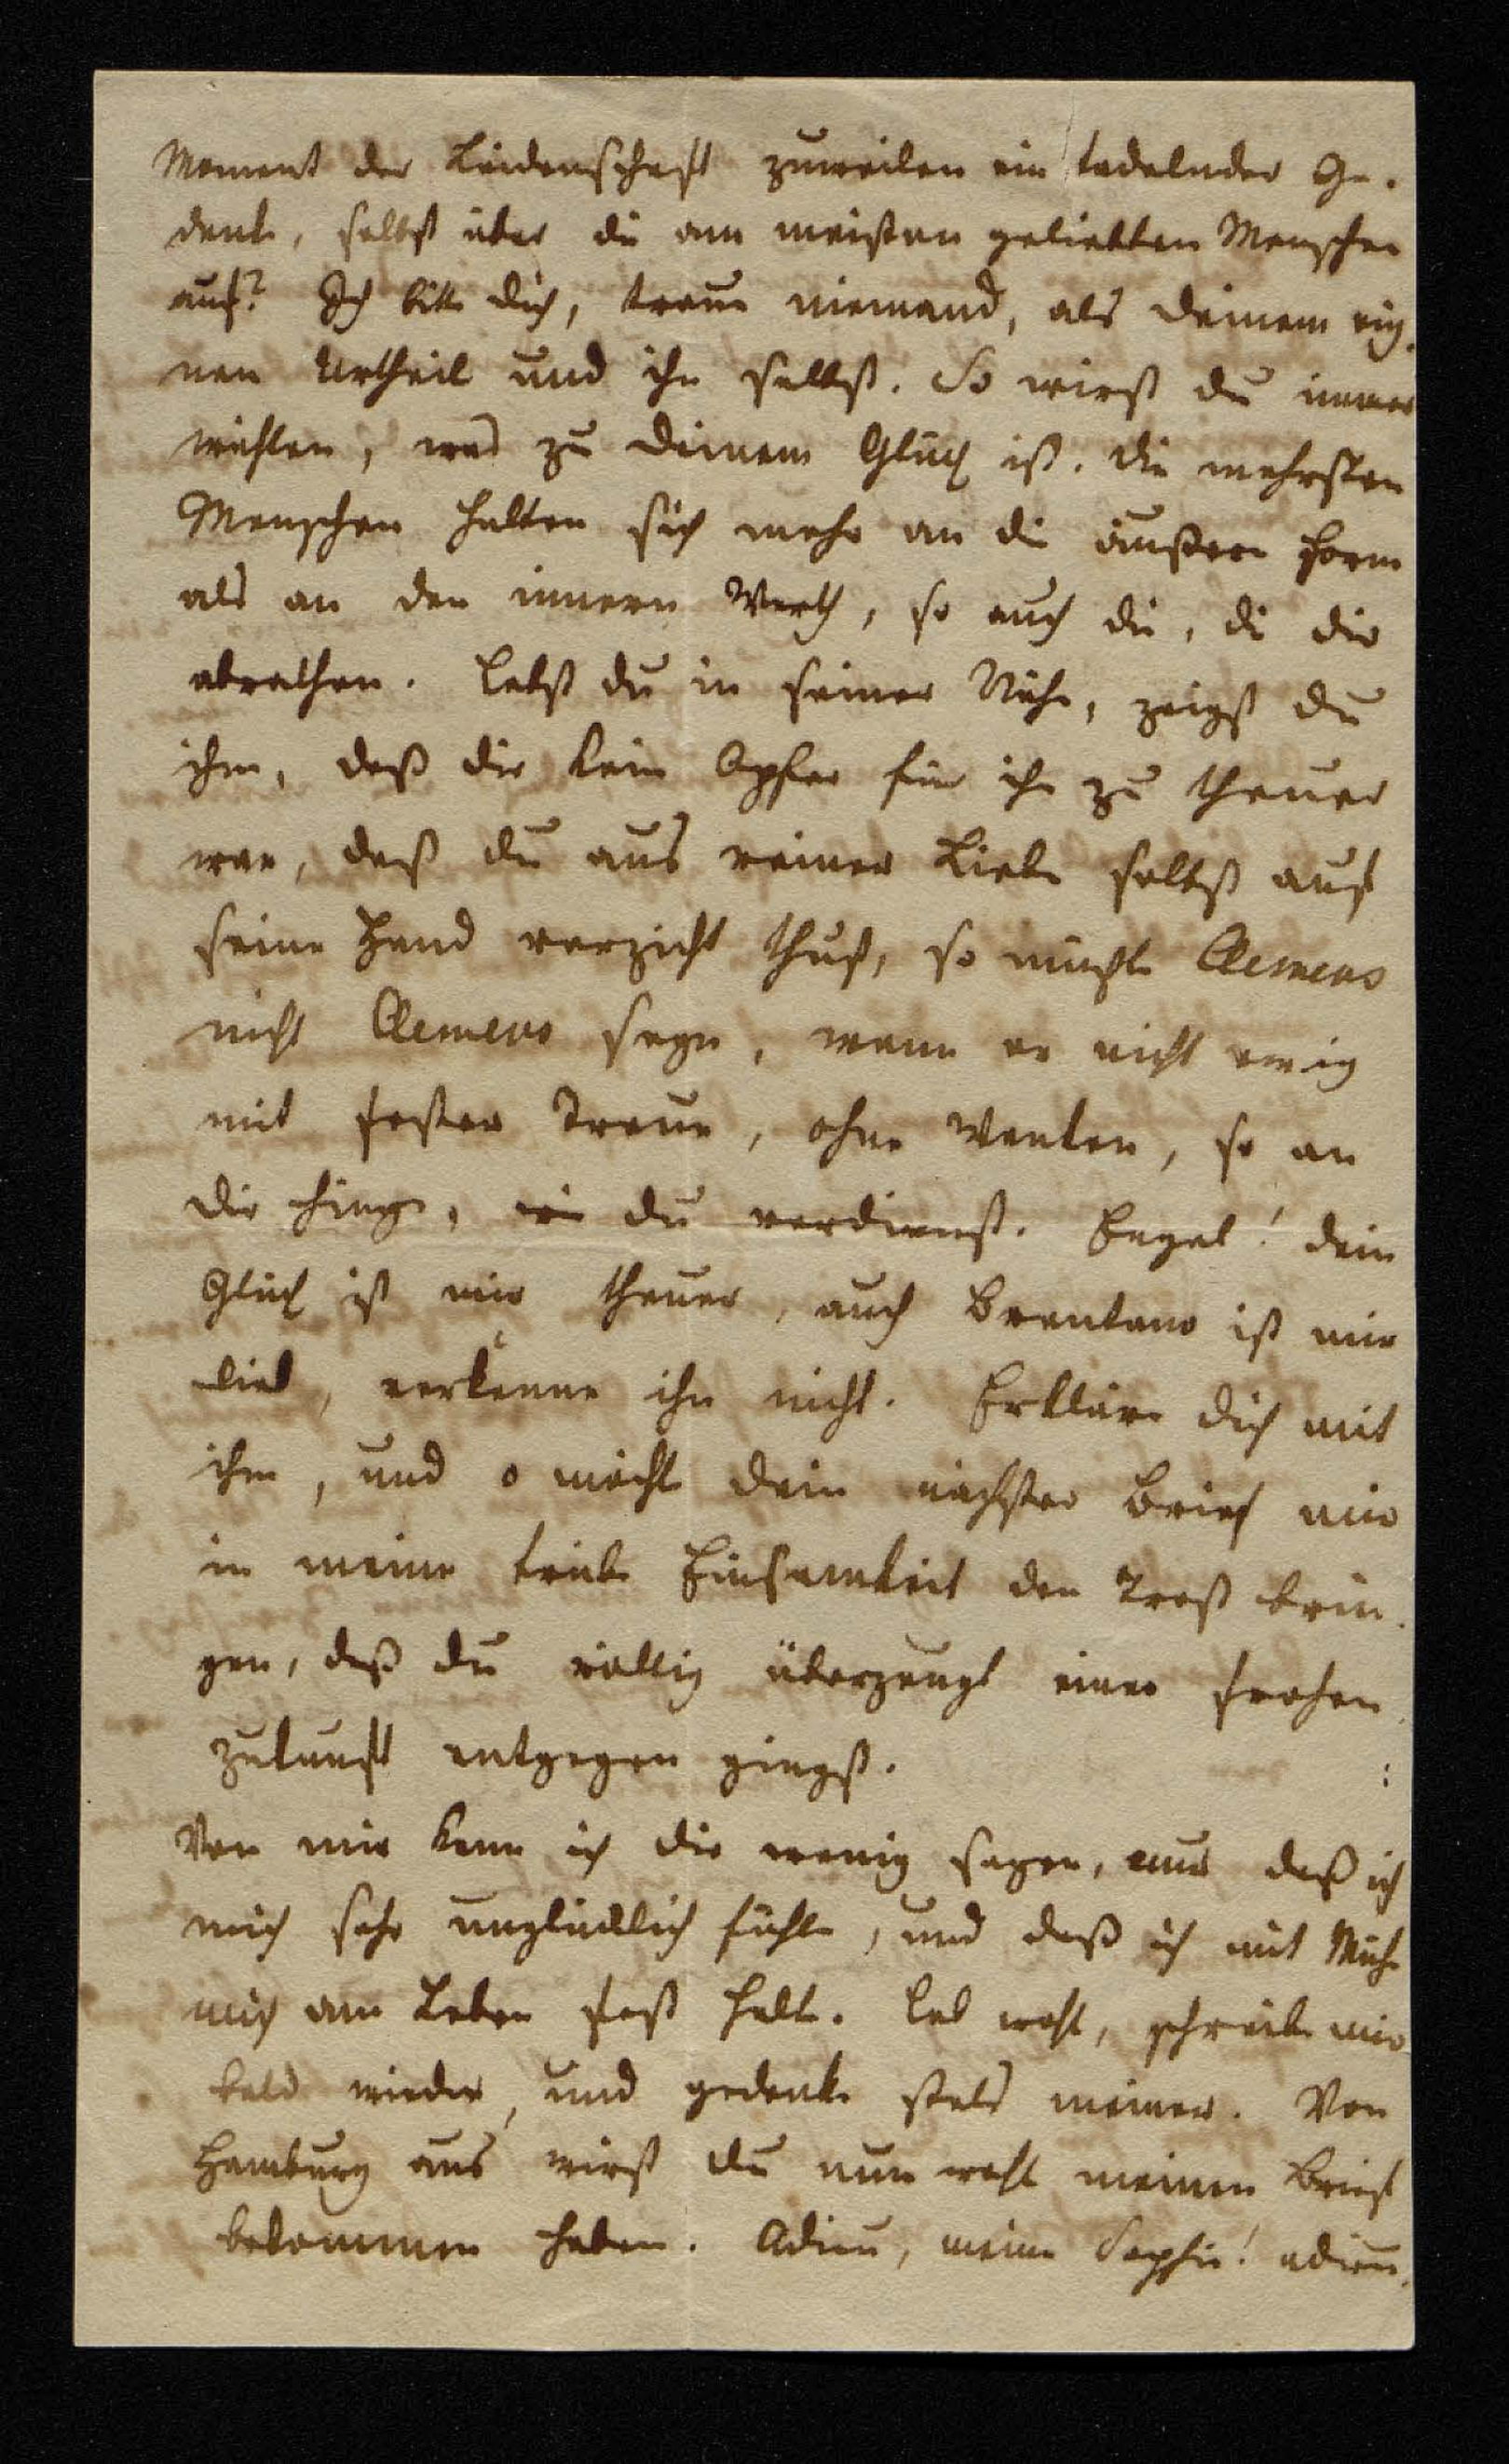 Moment der Leidenschaft zuweilen ein tadelnder Ge-
danke, selbst über die am meisten geliebten Menschen
auf? Ich bitte dich, traue niemand, als deinem eig-
nen Urtheil und ihn selbst. So wirst du immer
wählen, was zu deinem Glück ist. Die mehrsten
Menschen halten sich mehr an die äußere Form
als an den innern Werth, so auch die, die dir
abrathen. Lebst du in seiner Nähe, zeigst du
ihm, daß dir kein Opfer für ihn zu theuer
war, daß du aus reiner Liebe selbst auf
seine Hand verzicht thust, so müßte Clemens
nicht Clemens seyn, wenn er nicht ewig
mit fester Treue, ohne Wanken, so an
dir hinge, wie du verdienst. Engel! dein
Glück ist mir theuer, auch Brentano ist mir
lieb, verkenne ihn nicht. Erkläre dich mit
ihm, und o möchte dein nächster Brief mir
in meine trübe Einsamkeit den Trost brin-
gen, daß du völlig überzeugt einer frohen
Zukunft entgegen giengst.
Von mir kann ich dir wenig sagen, nur daß ich
mich sehr unglücklich fühle, und daß ich mit Mühe
mich am Leben fest halte. Leb wohl, schreibe mir
bald wieder, und gedenke stets meiner. Von
Hamburg aus wirst du nun wohl meinen Brief
bekommen haben. Adieu, meine Sophie! adieu.